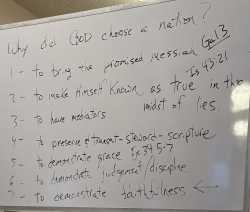 Why did GOD choose a nation?
1 - to bring the promised messiah Gal 3
Is 43:21
2 - to make Himself Known as True in the midst of lies
3 - to have mediators
4 - to preserve & Transmit - steward - scripture
5 - to demonstrate grace Ex 34:5-7
6 - to demonstrate judgement/discipline
7 - to demonstrate faithfulness ←